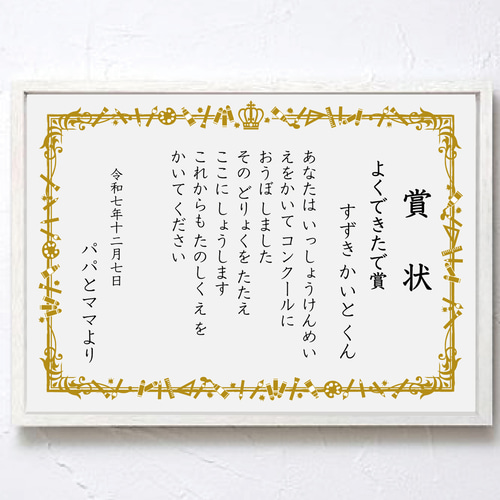 賞状
よくできたで賞
すずき かいと くん
あなたは いっしょうけんめい
えをかいて コンクールに
おうぼ しました
その どりょくを たたえ
ここに しょうします
これからも たのしく え を
かいて ください
令和七年十二月七日
パパとママより